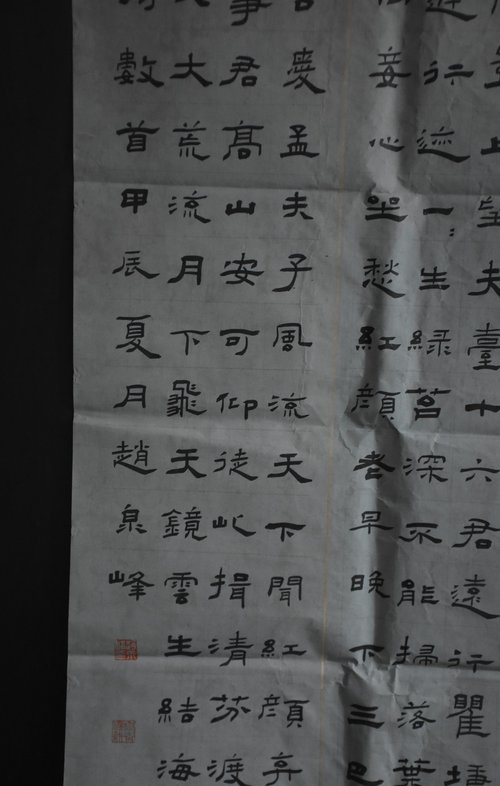 上望夫臺十六君遠行瞿塘
行迹一〻生綠苔深不能掃落葉
妾心坐愁紅顏老早晚下三巴
吾愛孟夫子風流天下聞紅顏弃
事君高山安可仰徒此揖清芬渡
大荒流月下飛天鏡雲生結海
數首甲辰夏月趙泉峰